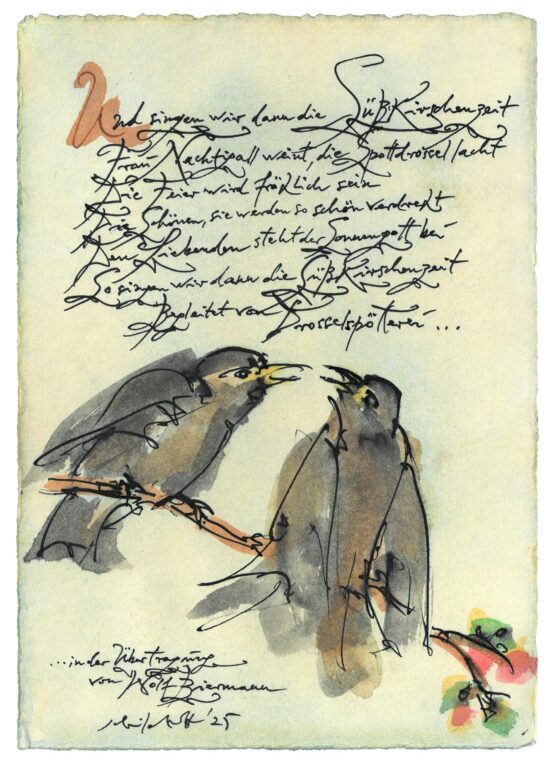 Und singen wir dann die Süß-Kirschenzeit
Frau Nachtigall weint, die Spottdrossel lacht
Die Feier wird fröhlich sein
Die Schönen, sie werden so schön verdreht
Den Liebenden steht der Sonnengott bei
So singen wir dann die Süß-Kirschenzeit
Begleitet von Drosselspötterei ...
...in der Übertragung
von Wolf Biermann
'25